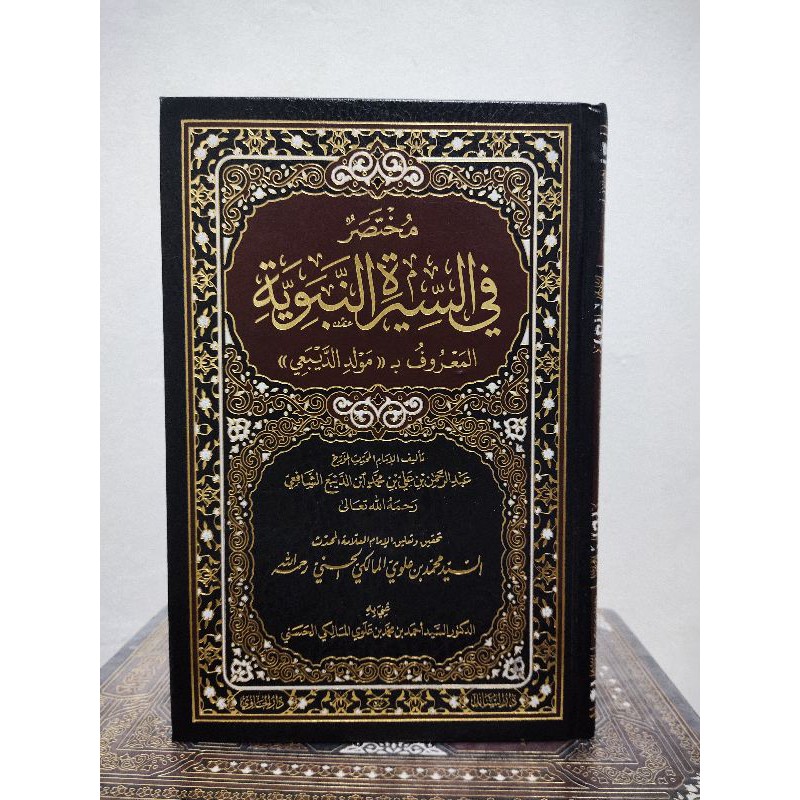 مُخْتَصَرٌ
فِي السِّيرَةِ النَّبَوِيَّةِ
المَعْرُوفُ بـ «مَوْلِدِ الدَّيْبَعِي»
تأليف الإمام المحدث المؤرخ
عبد الرحمن بن علي بن محمد ابن الديبع الشافعي
رحمه الله تعالى
تحقيق وتعليق الإمام العلامة المحدث
السيد محمد بن علوي المالكي الحسني رحمه الله
عني به
الدكتور السيد أحمد بن محمد بن علوي المالكي الحسني